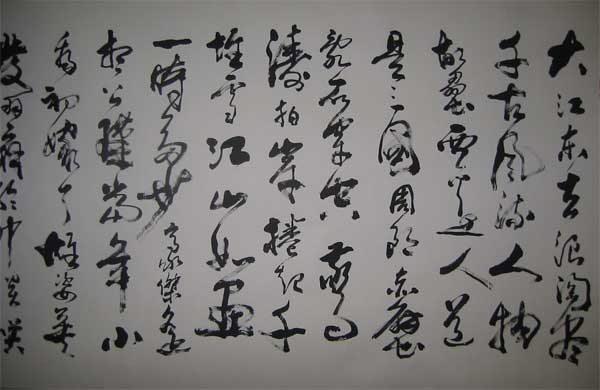 大江东去浪淘尽
千古风流人物
故壘西边人道
是三國周郎赤壁
亂石穿空驚
濤拍岸捲起千
堆雪江山如画
一時多少豪傑遥
想公瑾當年小
喬初嫁了雄姿英
發羽扇綸巾談笑